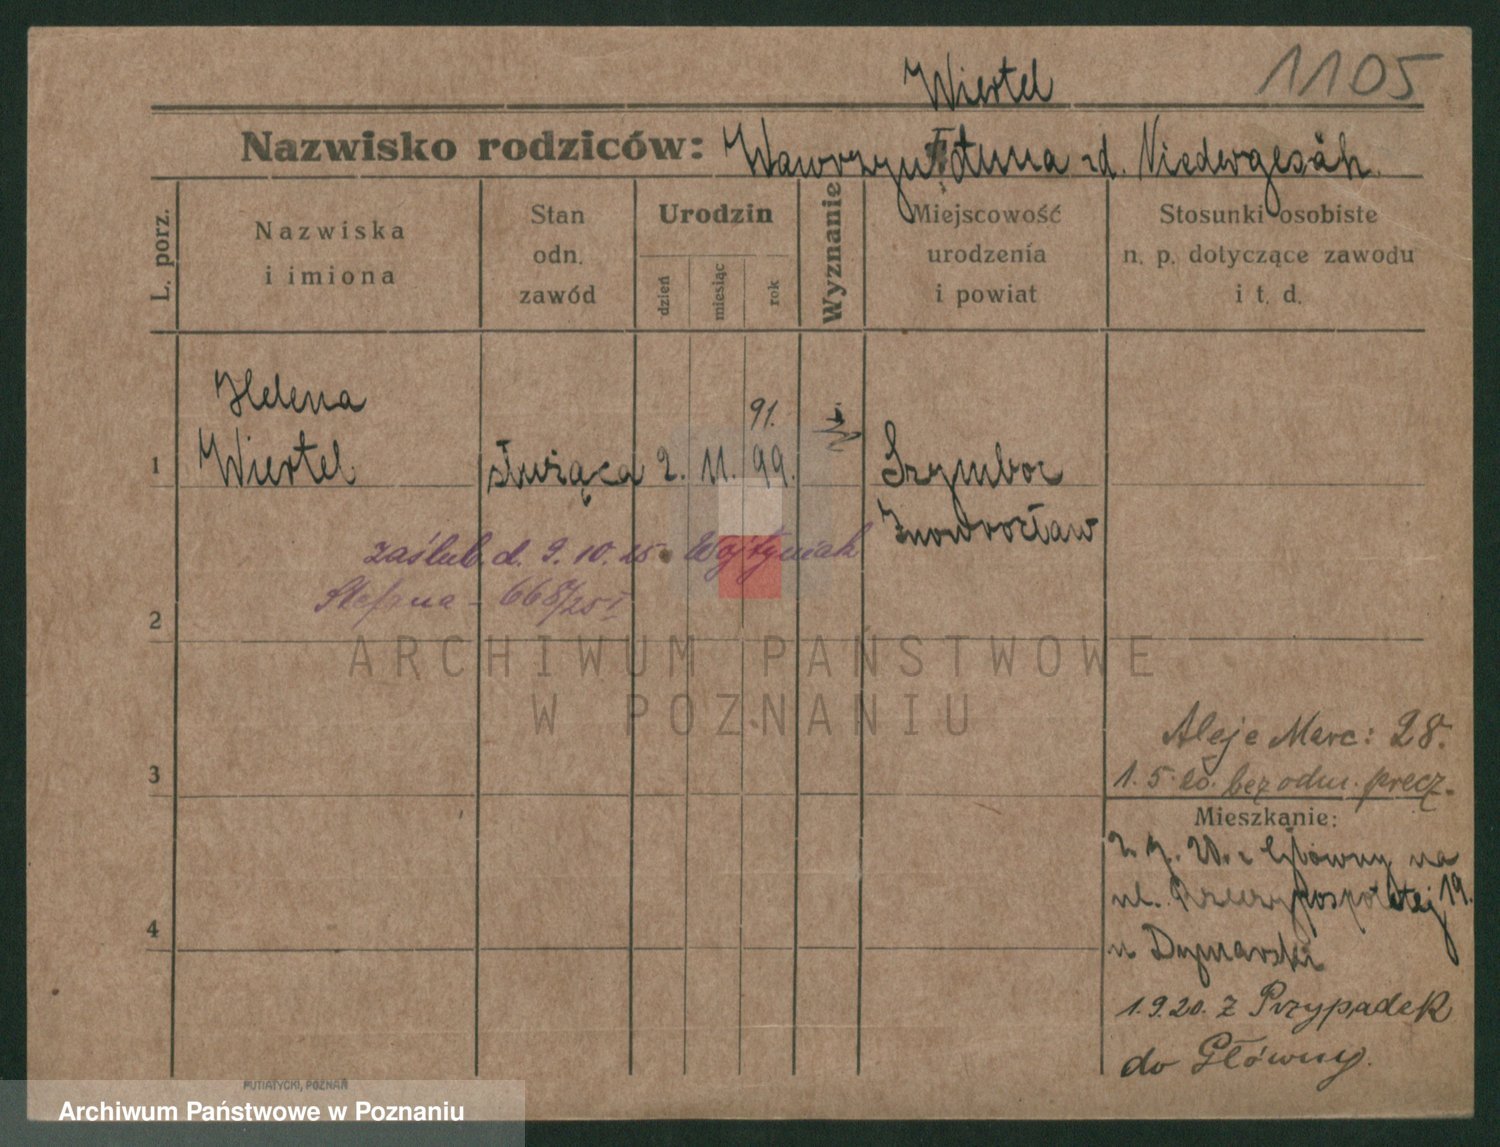 1105
Wiertel
Nazwisko rodziców: Wawrzyn i Anna zd. Niedergesäh
L. porz.
Nazwiska
i imiona
Stan
odn.
zawód
Urodzin
dzień
miesiąc
rok
Wyznanie
Miejscowość
urodzenia
i powiat
Stosunki osobiste
n. p. dotyczące zawodu
i t. d.
Helena
91.
1 Wiertel służąca 2. 11. 99. Szymboc
Inowrocław
zaślub. d. 9. 10. 25. Wojtyniak
2 668/25 I
ARCHIWUM PAŃSTWOWE
W POZNANIU
Aleje Marc: 28.
3 1. 5. 25. bez odm.
Mieszkanie:
Główny na
ul. Rzeczypospolitej 19.
4
u Dymarski
1.9.20. z Przypadek
do Główny.
PUTIATYCKI, POZNAŃ
Archiwum Państwowe w Poznaniu